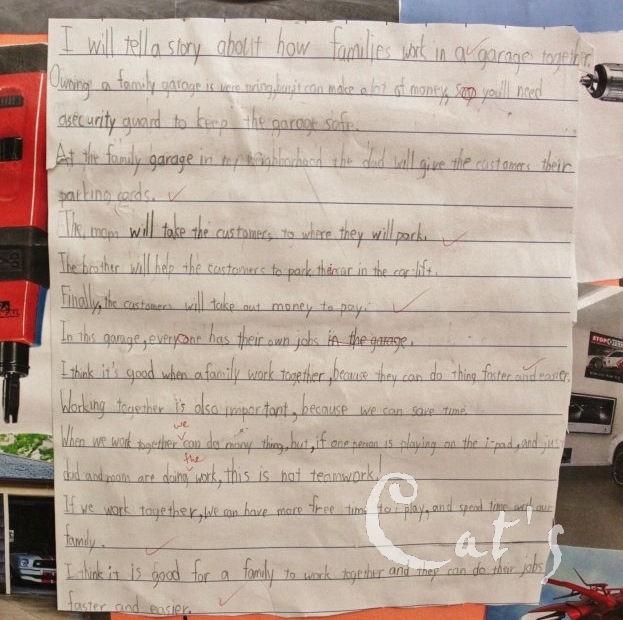 I will tell a story about how families work in a garage together
Owning a family garage is very tiring, but it can make a lot of money, so you'll need
a security guard to keep the garage safe.
At the family garage in my neighborhood the dad will give the customers their
parking cards.
The mom will take the customers to where they will park.
The brother will help the customers to park their car in the car-lift.
Finally, the customers will take out money to pay.
In this garage, everyone has their own jobs in the garage.
I think it's good when a family work together, because they can do thing faster and easier.
Working together is also important, because we can save time.
we
When we work together can do many thing, but, if one person is playing on the i-pad, and jus
the
dad and mom are doing work, this is not teamwork!
If we work together, we can have more free time to play, and spend time with our
family.
I think it is good for a family to work together and they can do their jobs
faster and easier.
Cat's